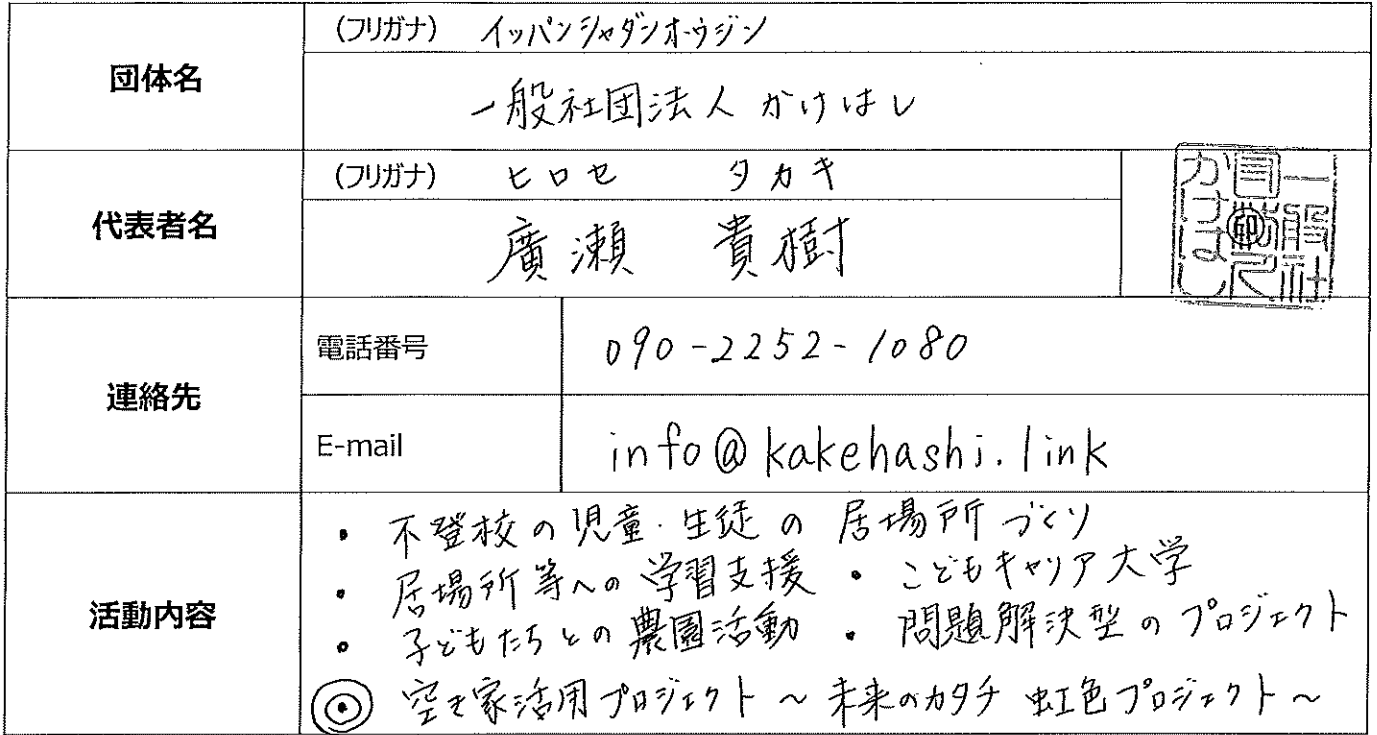 団体名
(フリガナ) イッパンシャダンホウジン
一般社団法人 かけはし
代表者名
(フリガナ) ヒロセ タカキ
廣瀬 貴樹
一般社
団法人
かけはし
印
連絡先
電話番号 090-2252-1080
E-mail info@kakehashi.link
活動内容
・不登校の児童・生徒の居場所づくり
・居場所等への学習支援 ・こどもキャリア大学
・子どもたちとの農園活動 ・問題解決型のプロジェクト
◎ 空き家活用プロジェクト ~ 未来のカタチ 虹色プロジェクト ~